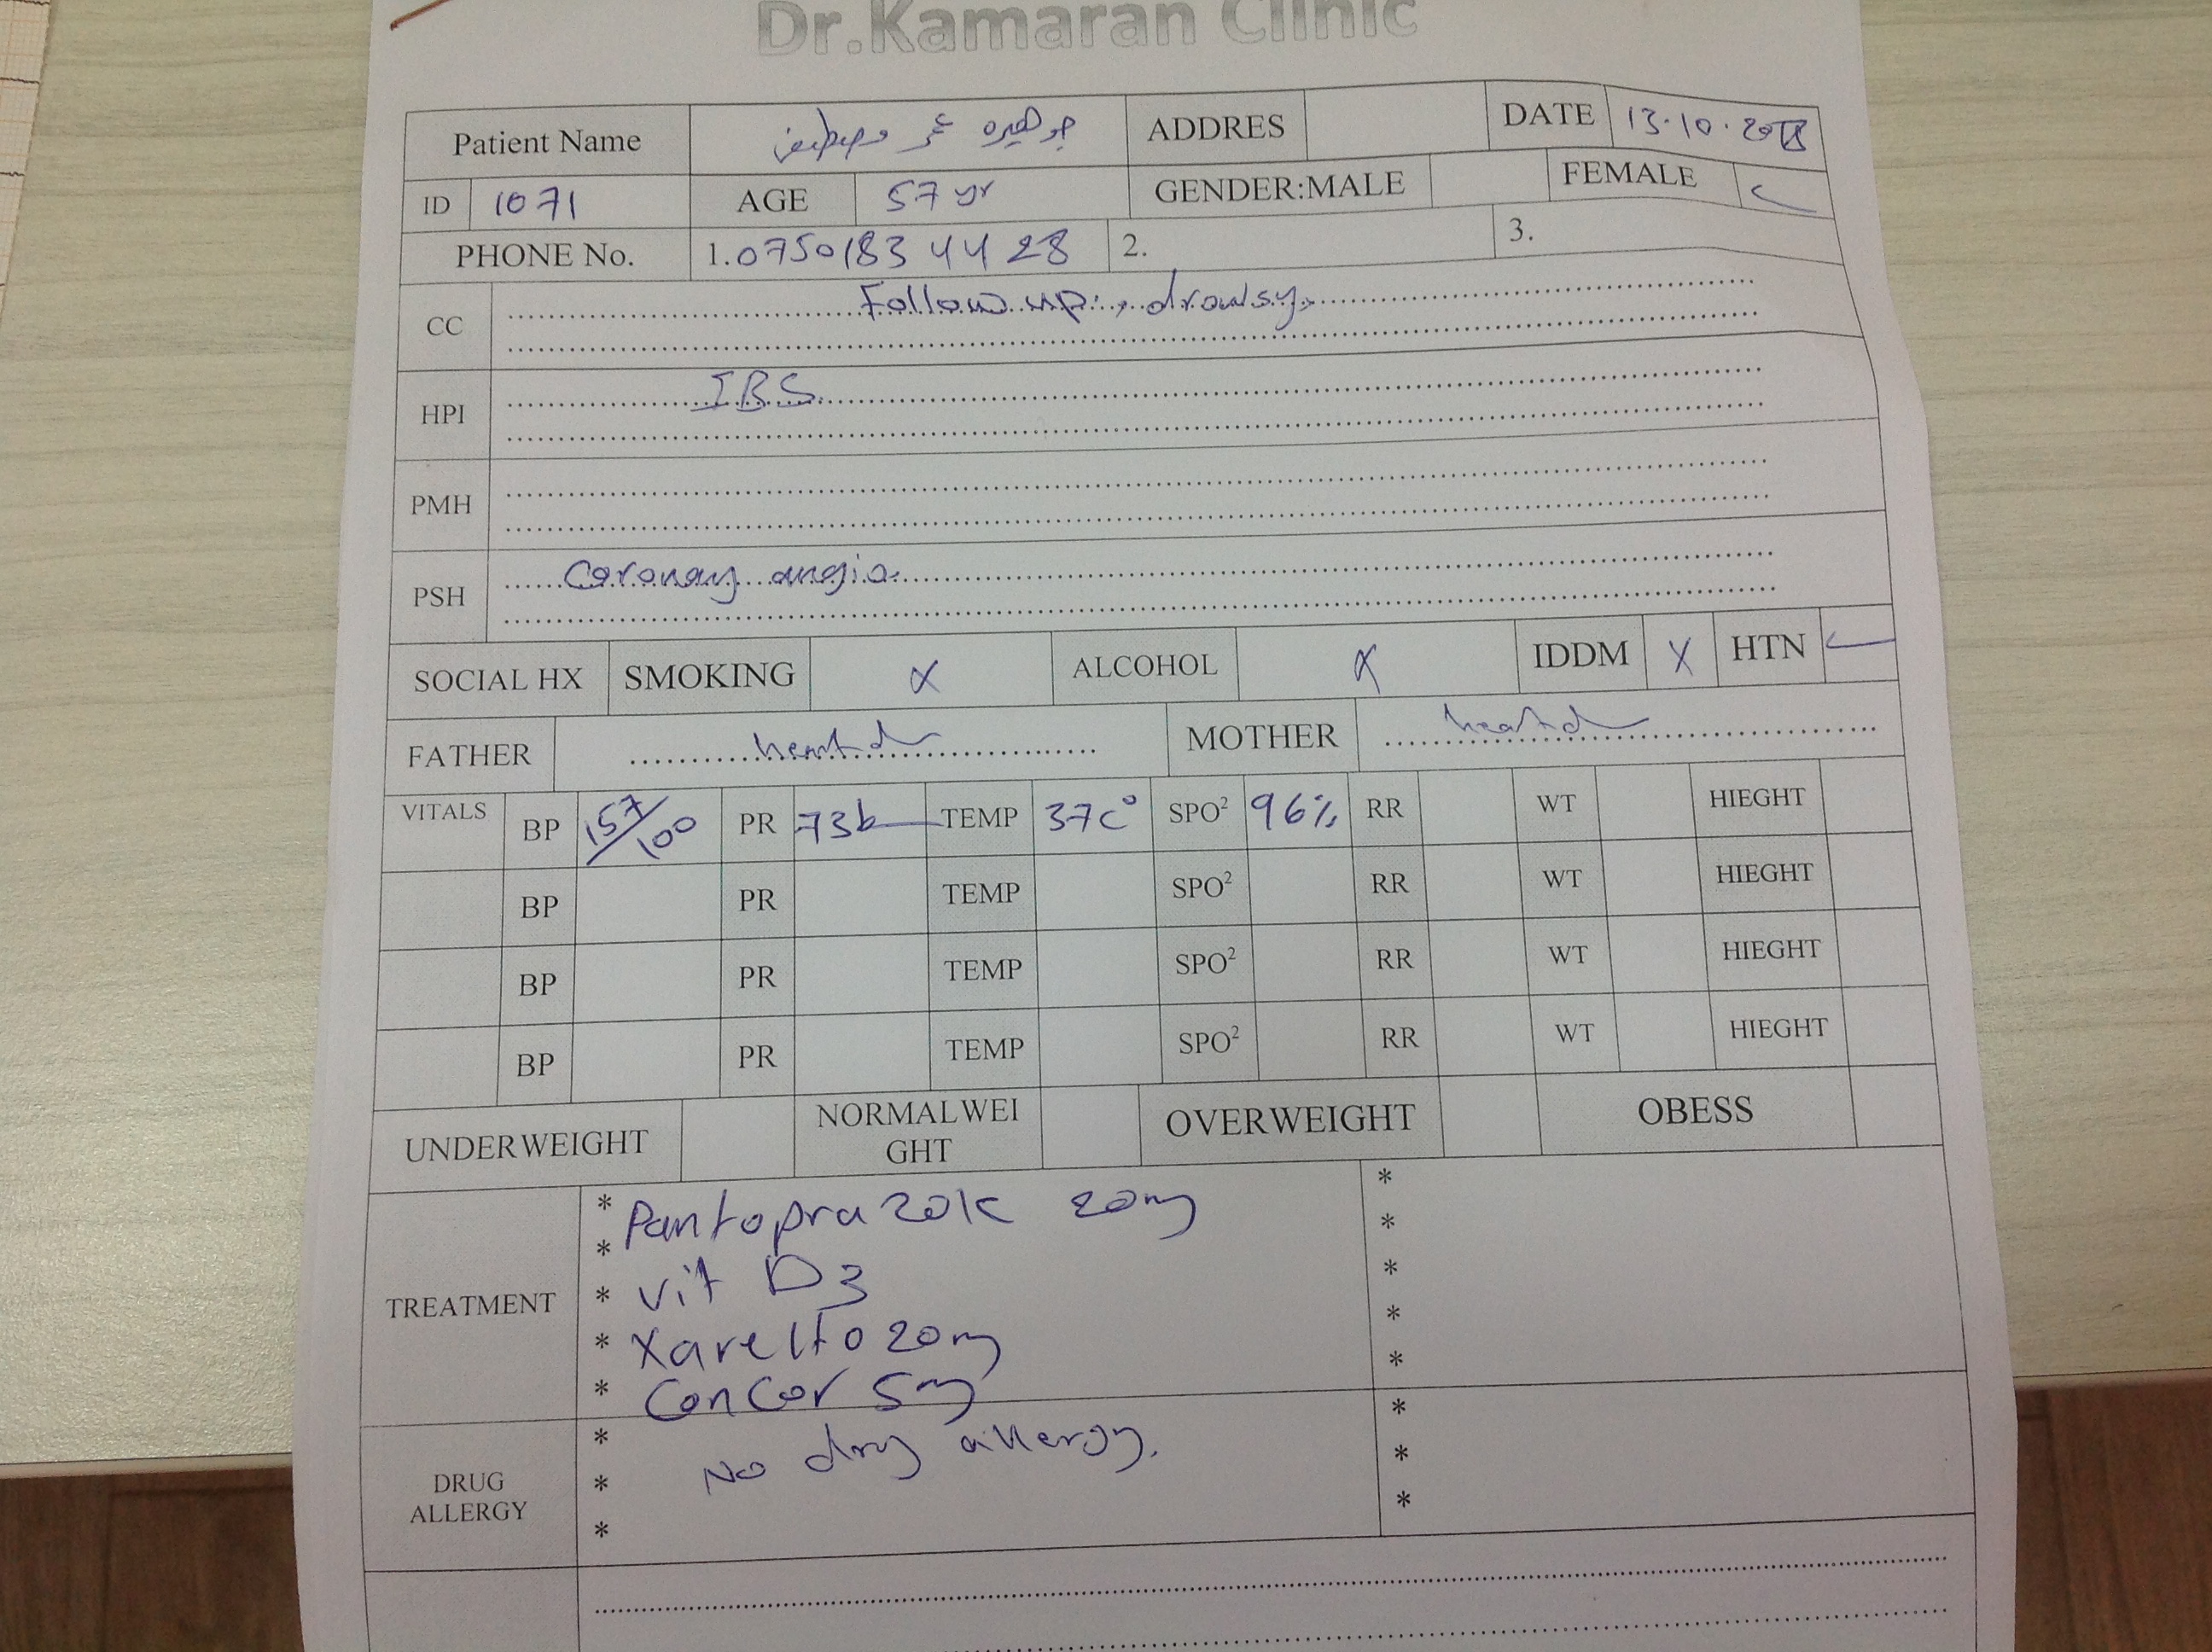 Dr.Kamaran Clinic
Patient Name جوهيره عمر مصطفى ADDRES DATE 13.10.
ID 1071 AGE 57 yr GENDER:MALE FEMALE ✓
PHONE No. 1.07501834428 2. 3.
CC Follow up, drowsy,
HPI IBS
PMH
PSH Coronary angio
SOCIAL HX SMOKING X ALCOHOL X IDDM X HTN ✓
FATHER heart d MOTHER heart d
VITALS BP 157/100 PR 73b TEMP 37c° SPO² 96% RR WT HIEGHT
BP PR TEMP SPO² RR WT HIEGHT
BP PR TEMP SPO² RR WT HIEGHT
BP PR TEMP SPO² RR WT HIEGHT
UNDERWEIGHT NORMALWEI
GHT OVERWEIGHT OBESS
TREATMENT
* Pantoprazole 20mg
* vit D3
* Xarelto 20mg
* Concor 5mg
DRUG
ALLERGY
No drug allergy.